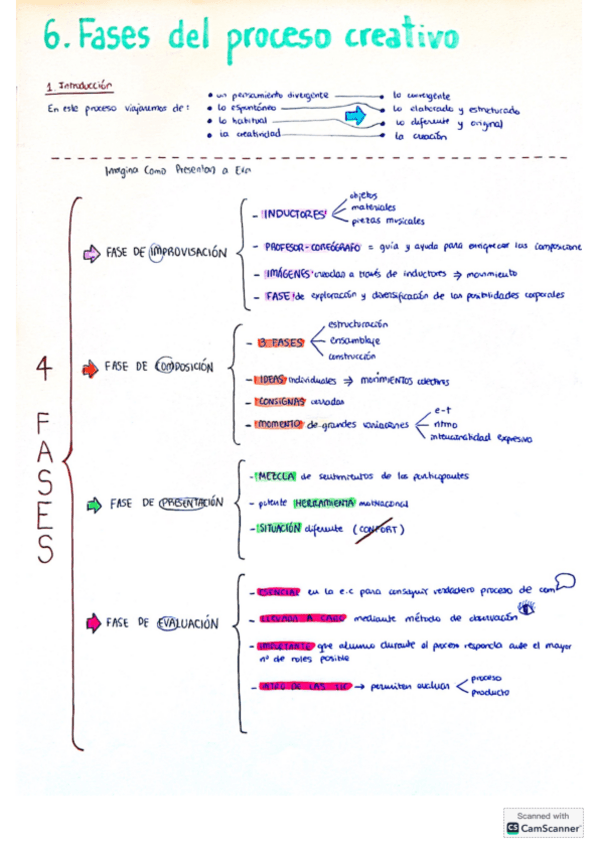 6. Fases del proceso creativo
1. Introducción
En este proceso viajaremos de:
• un pensamiento divergente
• lo espontáneo
• lo habitual
• la creatividad
• lo convergente
• lo elaborado y estructurado
• lo diferente y original
• la creación
Imagina Como Presentan a Eva
4 FASES
FASE DE IMPROVISACIÓN
- INDUCTORES
objetos
materiales
piezas musicales
- PROFESOR-COREÓGRAFO = guía y ayuda para enriquecer las composicione
- IMÁGENES creadas a través de inductores ⇒ movimiento
- FASE de exploración y diversificación de las posibilidades corporales
FASE DE COMPOSICIÓN
- 3 FASES
estructuración
ensamblaje
construcción
- IDEAS individuales ⇒ movimientos colectivos
- CONSIGNAS cerradas
- MOMENTO de grandes variaciones
e-t
ritmo
intencionalidad expresiva
FASE DE PRESENTACIÓN
- MEZCLA de sentimientos de los participantes
- potente HERRAMIENTA motivacional
- SITUACIÓN diferente (CONFORT)
FASE DE EVALUACIÓN
- ESENCIAL en la e.c para conseguir verdadero proceso de com
- LLEVADA A CABO mediante método de observación
- IMPORTANTE que alumno durante el proceso responda ante el mayor
nº de roles posible
- DE LAS TIC → permiten evaluar
proceso
producto
Scanned with
CS CamScanner